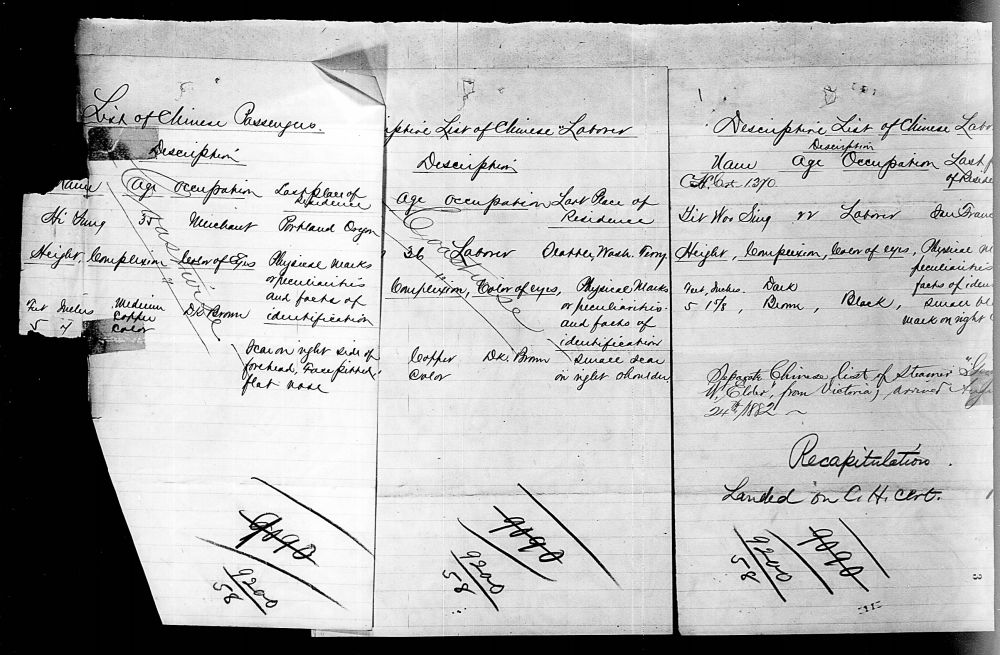 List of Chinese Passengers.
Description
Name Age Occupation Last place of
Residence
Hi Yung 35 Merchant Portland Oregon
Height, Complexion Color of Eyes Physical Marks
or peculiarities
and facts of
identification
Feet Inches Medium Dk Brown
5 7 Copper
Color
Scar on right side of
forehead, Face pitted,
flat nose
Coastwise
9090
9200
58
List of Chinese Laborer
Description
Age Occupation Last Place of
Residence
36 Laborer Seattle, Wash. Terry
Complexion, Color of eyes, Physical Marks
or peculiarities
and facts of
identification
Copper Dk. Brown small scar
Color on right shoulder
Coastwise
9090
9200
58
Descriptive List of Chinese Labor
Description
Name Age Occupation Last
of Reside
C.H. Cert 1370
Sing 22 Laborer San Franc
Height, Complexion, Color of eyes, Physical M
peculiarities
facts of iden
Feet, Inches. Dark small
5 1 7/8, Brown, Black, mark on right
Separate Chinese list of Steamer
W. Elder", from Victoria, arrived
24th, 1882
Recapitulation.
Landed on C. H. Cert.
9090
9200
58
3